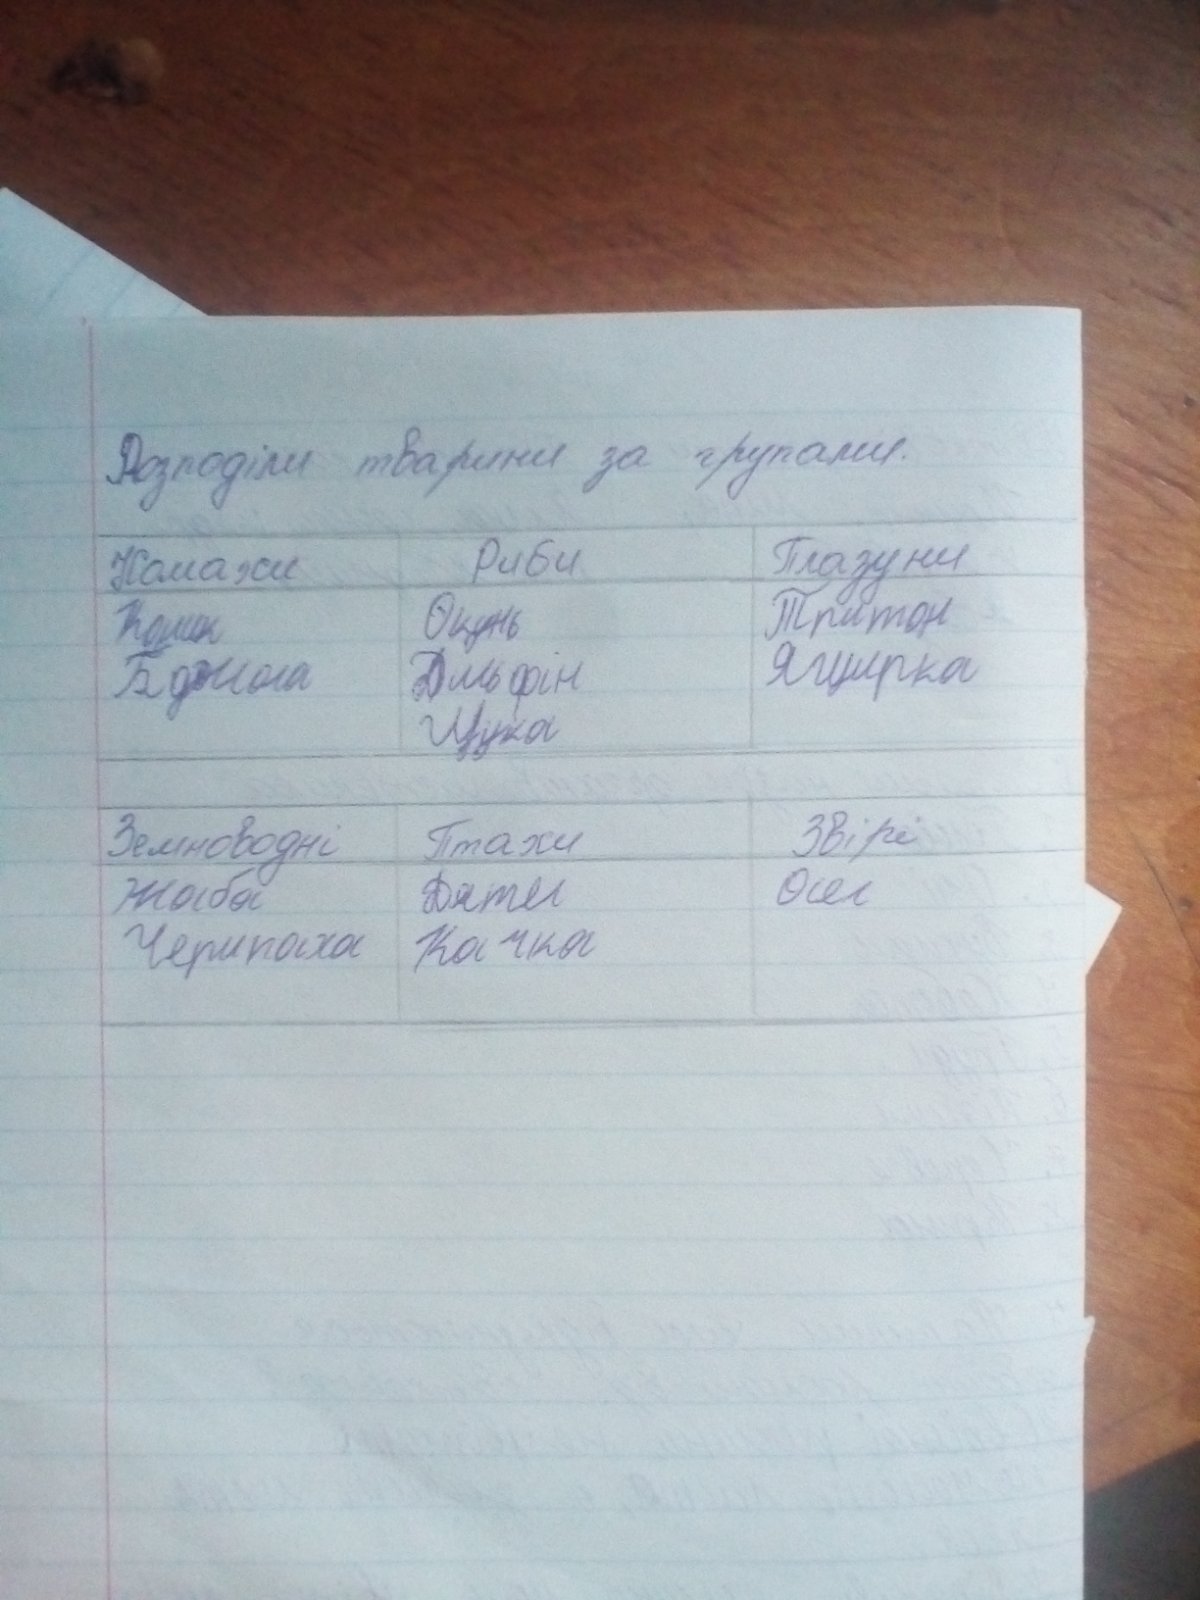 Розподіли тварини за групами.
Комахи Риби Плазуни
Комах Окунь Тритон
Бджола Дельфін Ящирка
Щука
Земноводні Птахи Звірі
Жаба Дятел Осел
Черипаха Качка